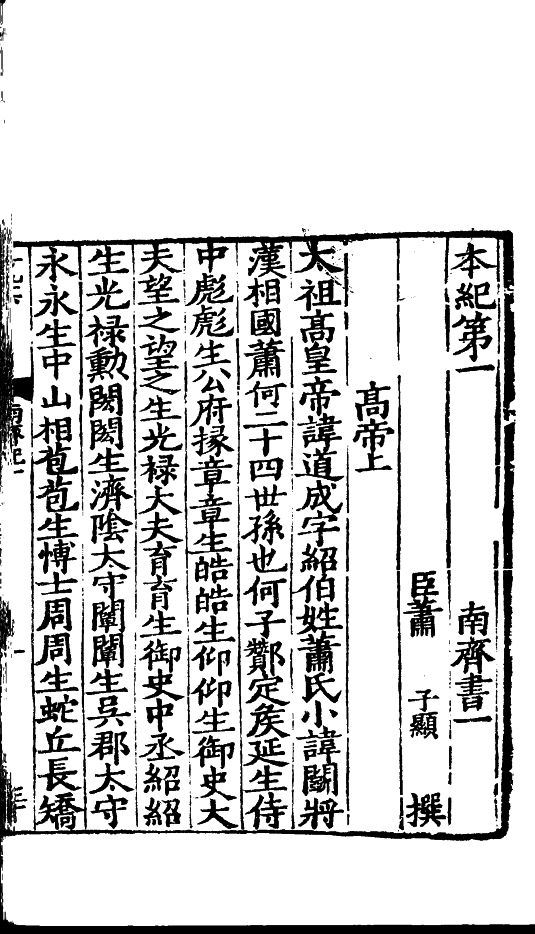 本紀第一 南齊書一
臣蕭 子顯 撰
髙帝上
太祖髙皇帝諱道成字紹伯姓蕭氏小諱鬭將
漢相國蕭何二十四世孫也何子酇定矦延生侍
中彪彪生公府掾章章生皓皓生仰仰生御史大
夫望之望之生光禄大夫育育生御史中丞紹紹
生光禄勳閎閎生濟陰太守闡闡生吳郡太守
永永生中山相苞苞生博士周周生蛇丘長矯